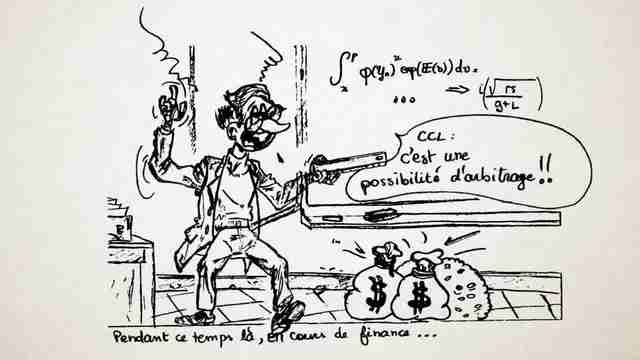 ∫ φ(yₙ) exp(E(v)) dv.
... ⇒ (√rs / g+L)
CCL :
c'est une
possibilité d'arbitrage !!
$ $
Pendant ce temps là, en cours de finance ...